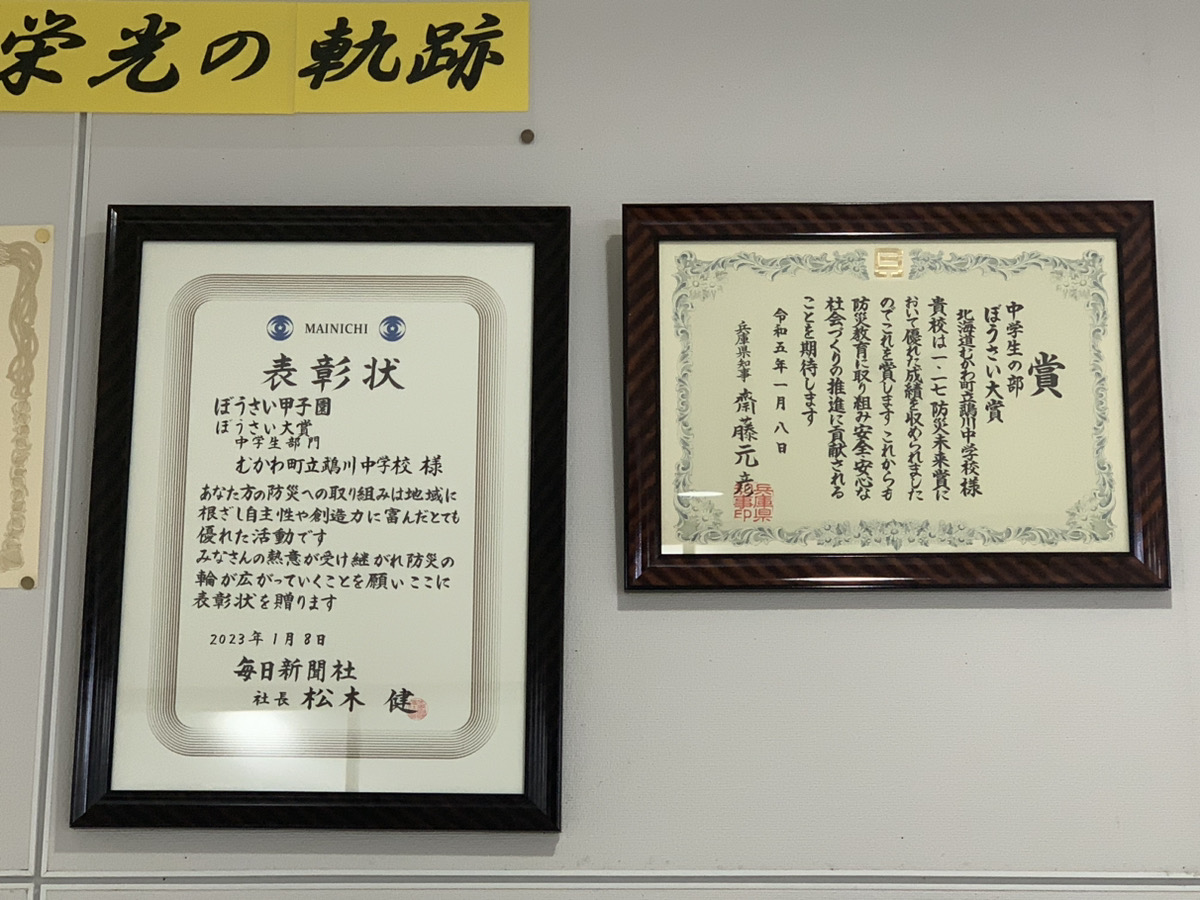 栄光の軌跡
MAINICHI
表彰状
ぼうさい甲子園
ぼうさい大賞
中学生部門
むかわ町立鵡川中学校 様
あなた方の防災への取り組みは地域に
根ざし自主性や創造力に富んだとても
優れた活動です
みなさんの熱意が受け継がれ防災の
輪が広がっていくことを願い ここに
表彰状を贈ります
2023年1月8日
毎日新聞社
社長 松木 健
賞
中学生の部
ぼうさい大賞
北海道むかわ町立鵡川中学校様
貴校は一・一七防災未来賞に
おいて優れた成績を収められました
のでこれを賞します これからも
防災教育に取り組み安全・安心な
社会づくりの推進に貢献される
ことを期待します
令和五年一月八日
兵庫県知事 齋藤元彦
兵庫県
知事印